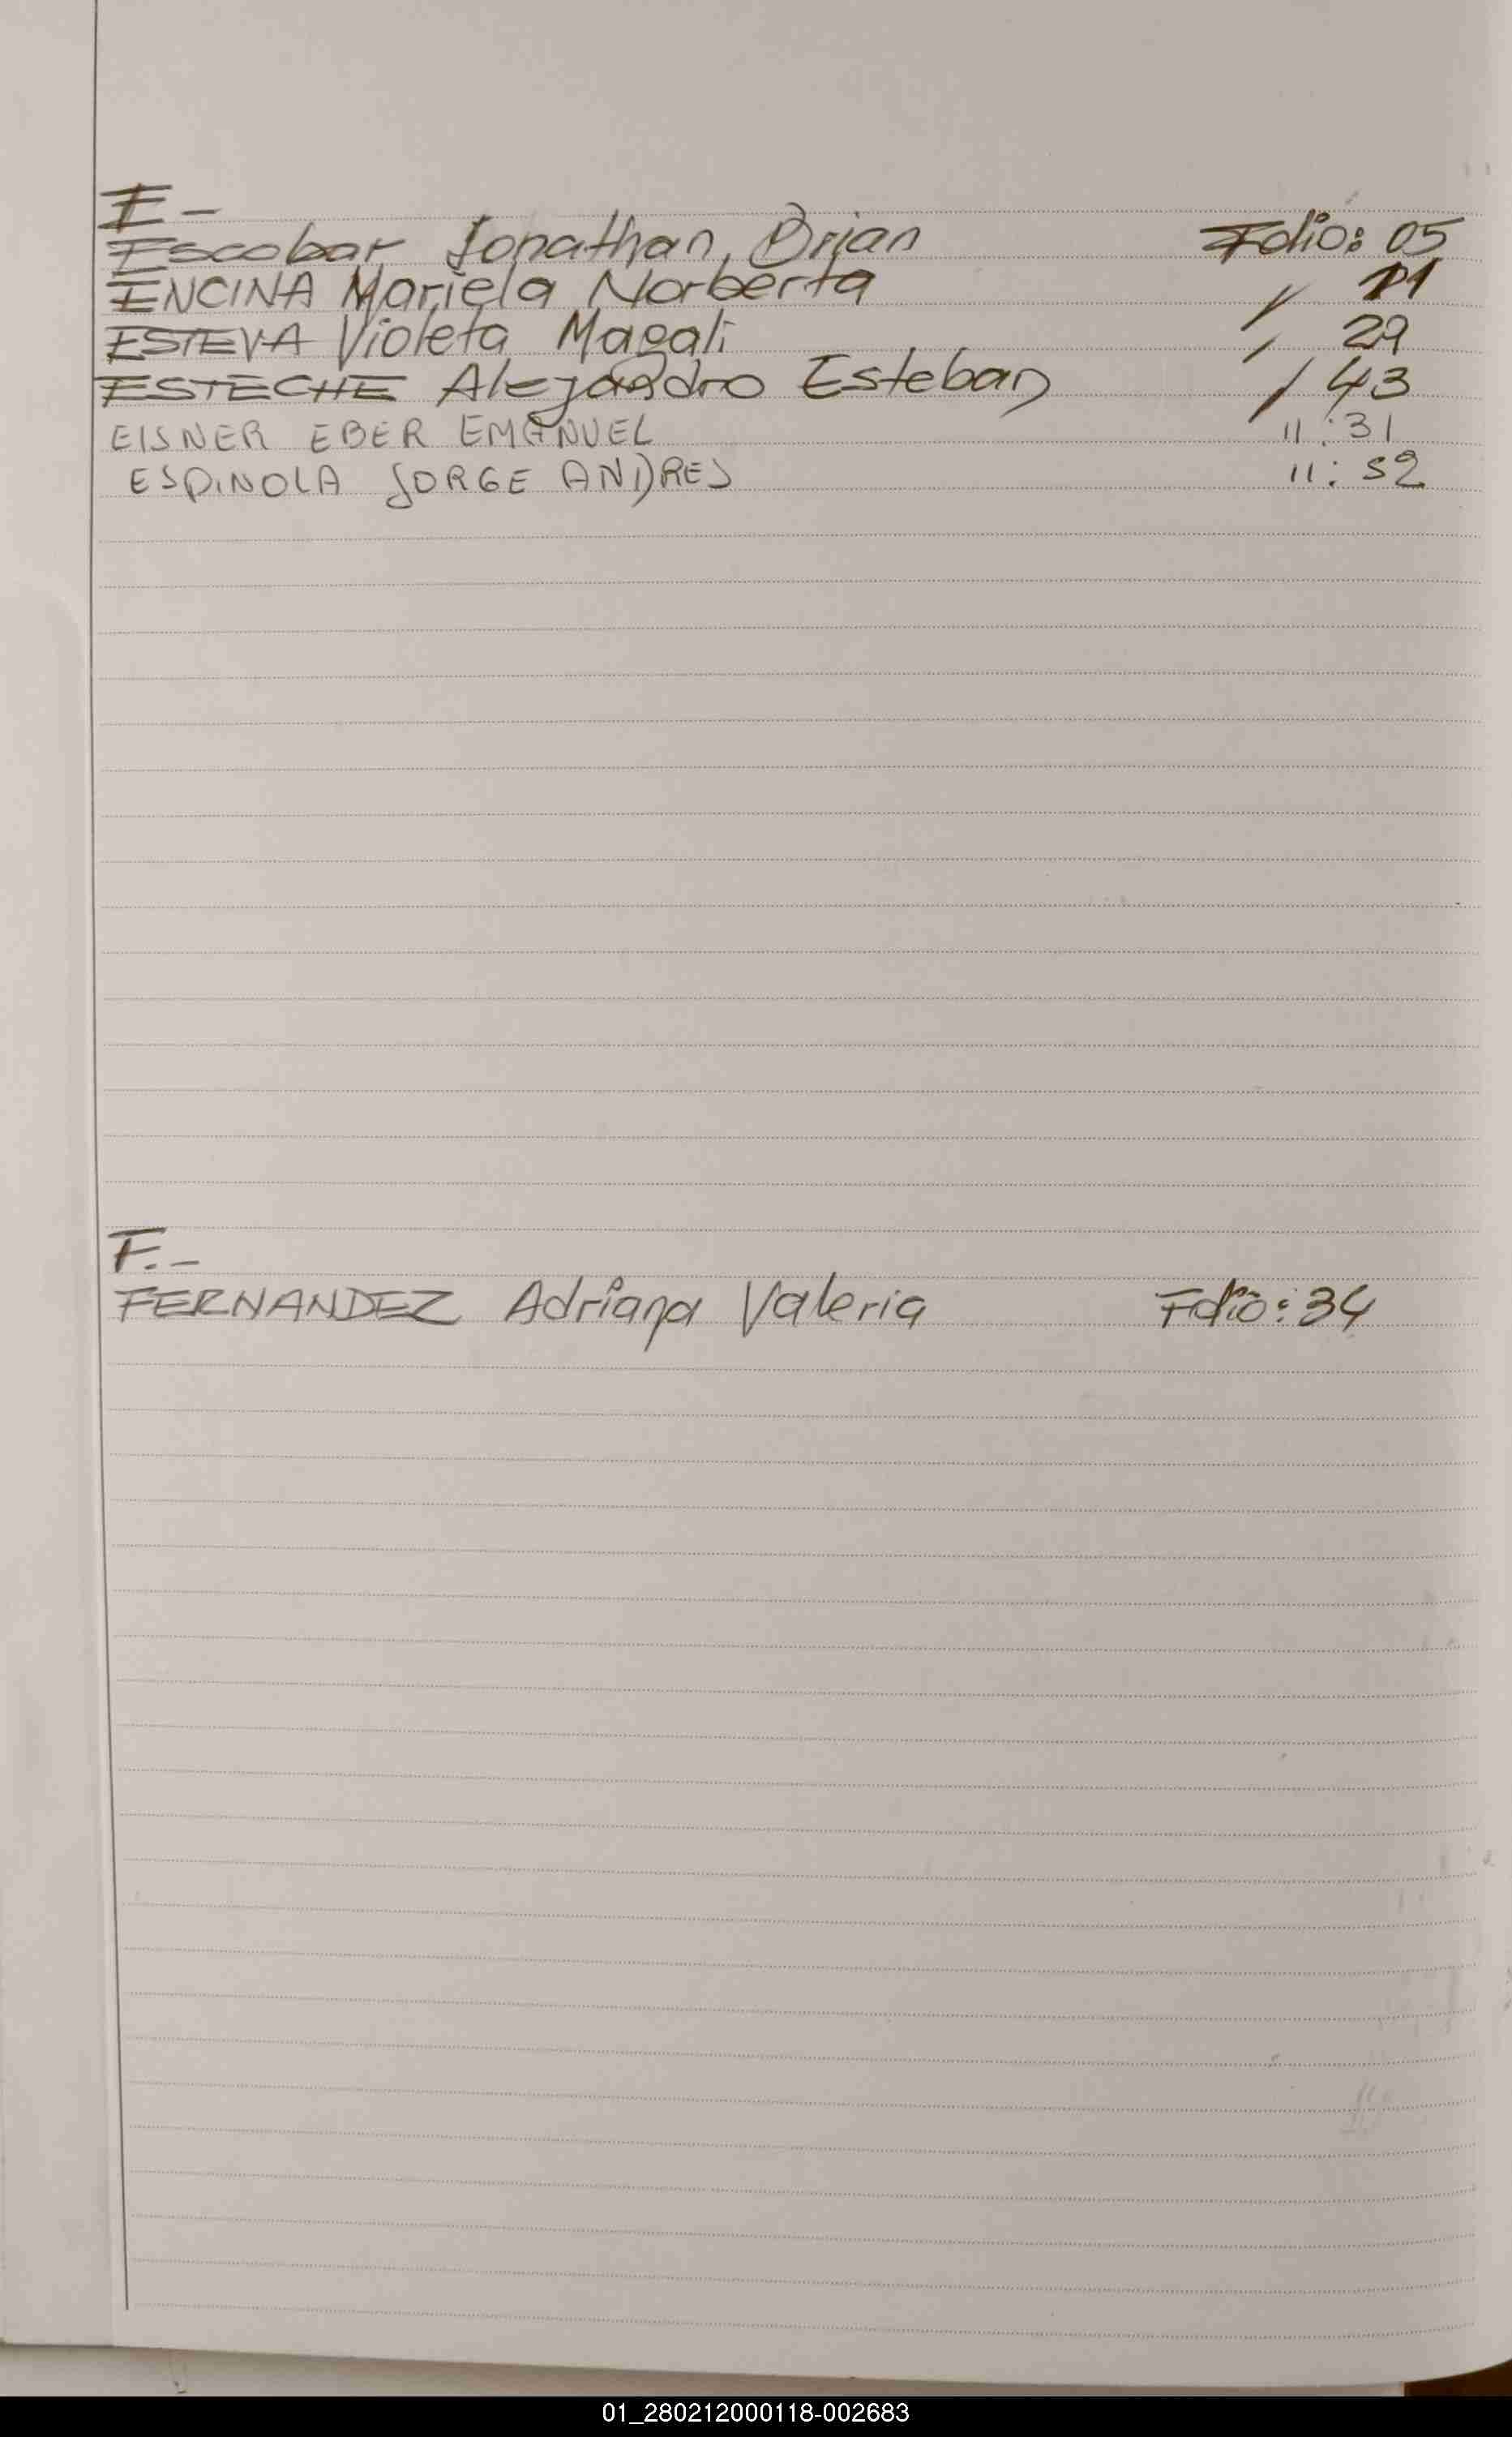 E -
Escobar Jonathan, Brian Folio: 05
ENCINA Mariela Norberta / 11
ESTEVA Violeta Magali / 29
ESTECHE Alejandro Esteban / 43
EISNER EBER EMANUEL 11: 31
ESPINOLA JORGE ANDRES 11: 52
F.-
FERNANDEZ Adriana Valeria Folio: 34
01_280212000118-002683